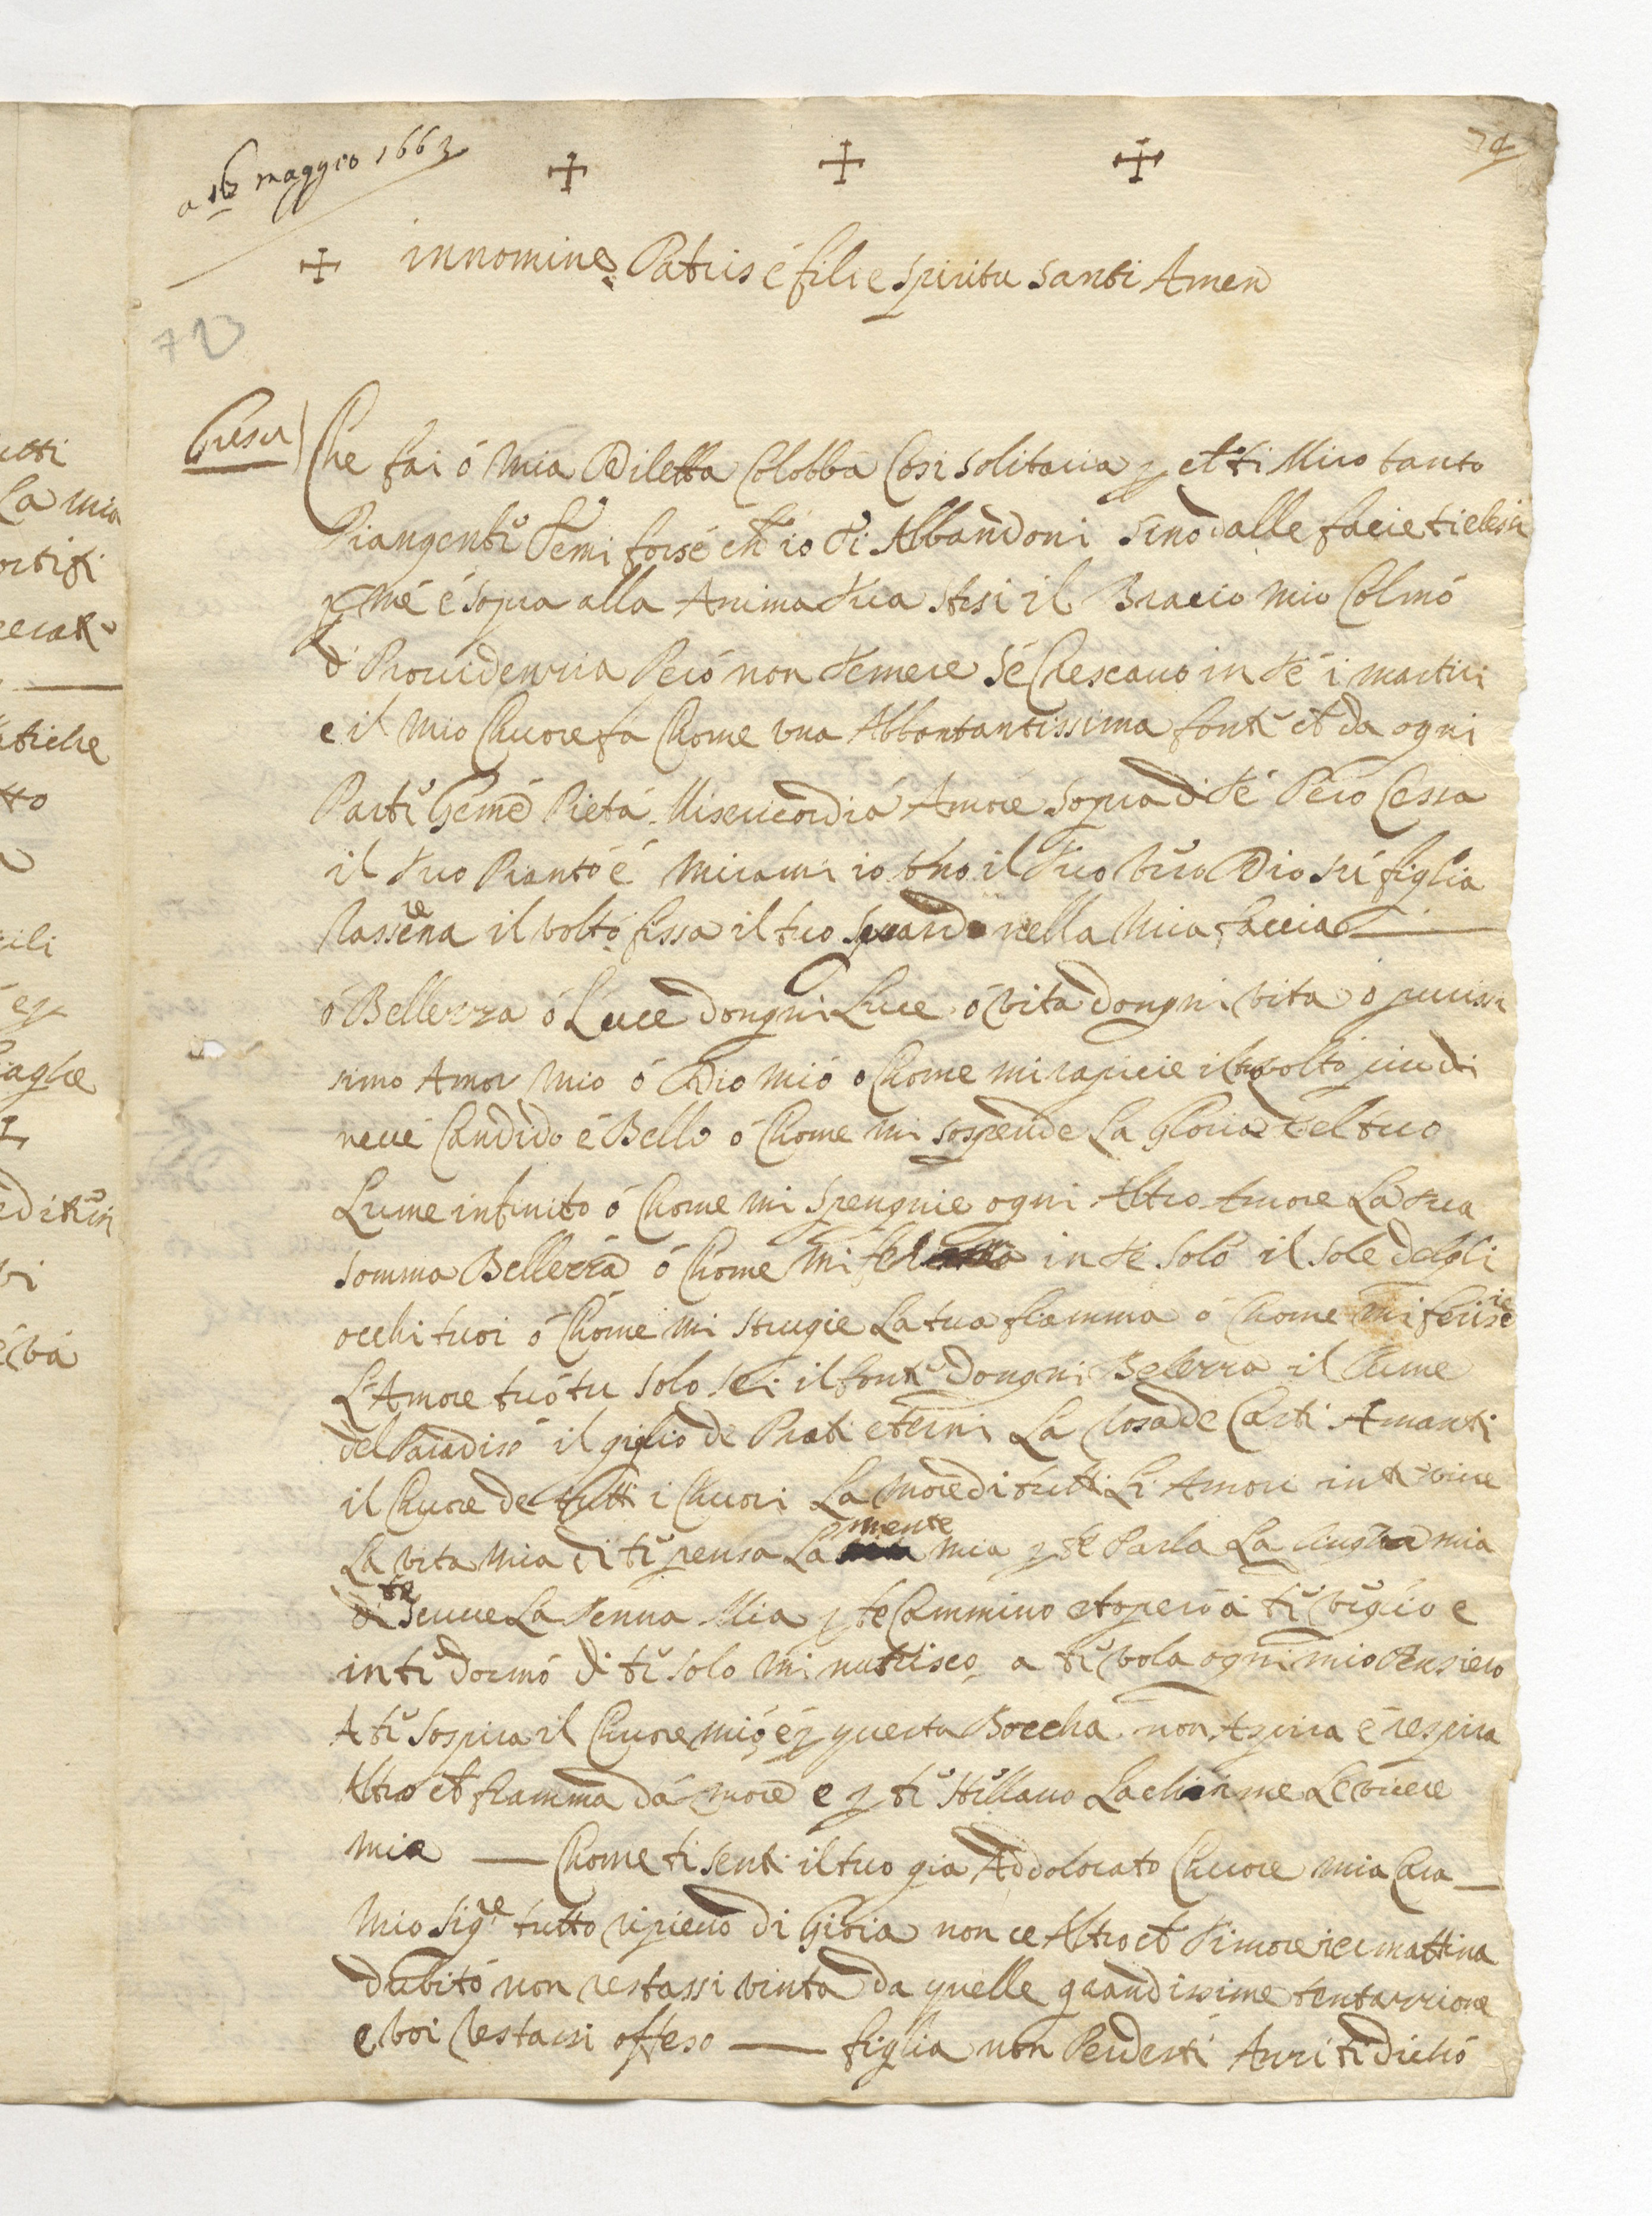 a 16 maggio 1663
74
in nomine Patris é filie spiritu santi Amen
713
Giesu
Che fai ó mia Diletta Colobba Cosi solitaria p ch ti Miro tanto
Piangente Temi forse ch io ti Abbandoni sino dalle facie ti elessi
p mé é sopra alla Anima tua stesi il Bracio mio Colmó
d Prouidenzia Peró non temere sé Crescano in té i martiri
e il mio Chuore fa Chome vna Abbontantissima fonte ch da ogni
Parte Geme Pietá Misericordiá Amore sopra di té Peró Cessa
il tuo Piantó é mirami io sno il tuo vero Dio sú figlia
Rasserena il voltó fissa il tuo sguardo nella mia faccia
ó Bellezza ó Luce dongni Luce ó vita dongni vita o puriss
simo Amor mio ó Dio mió o Chome mi rapicie il tuo voltó piu di
neué Candido é Bello ó Chome mi sospende La Gloria del tuo
Lume infinito ó Chome mi spengnie ogni Altro Amore La tua
somma Bellezza ó Chome mi in té solo il sole degli
occhi tuoi ó Chome mi strugie La tua fiamma ó Chome mi ferisie
L Amore tuó tu solo sei il fonte dongni Belezza il Lume
del Paradisó il giglio de Prati eterni La Rosa de Casti Amanti
il Chuore de tutti i Chuori La more di tutti Li Amori in te viue
La vita mia di te pensa La mente mia p te Parla La lingha mia
di te scriue La Penna Mia p te Cammino et operó á te vegio e
in te dormó di te solo mi nutrisco a te vola ogni mio Pensiero
A te sospira il Chuore mió é p questa Boccha non Aspira é respira
Altro ch fiamma dá more e p te stillano Lachrime Le viscere
mie — Chome ti senti il tuo gia Addolorato Chuore mia Cara —
Mio Sigre tutto ripieno di Gioia non ce Altro ch Timore ier mattina
dubitó non restassi vinta da quelle grandissime tentazzione
e voi restassi offeso — figlia non Perdesti Anzi ti dichó